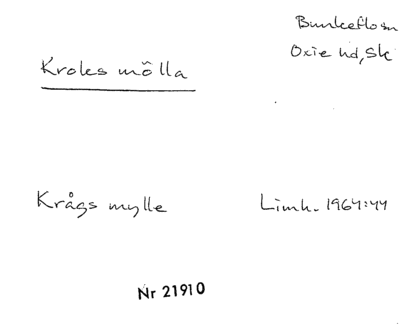 Bunkeflosn
Oxie hd, Sk
Kroks mölla
Krågs mylle
Limh. 1964:44
Nr 21910